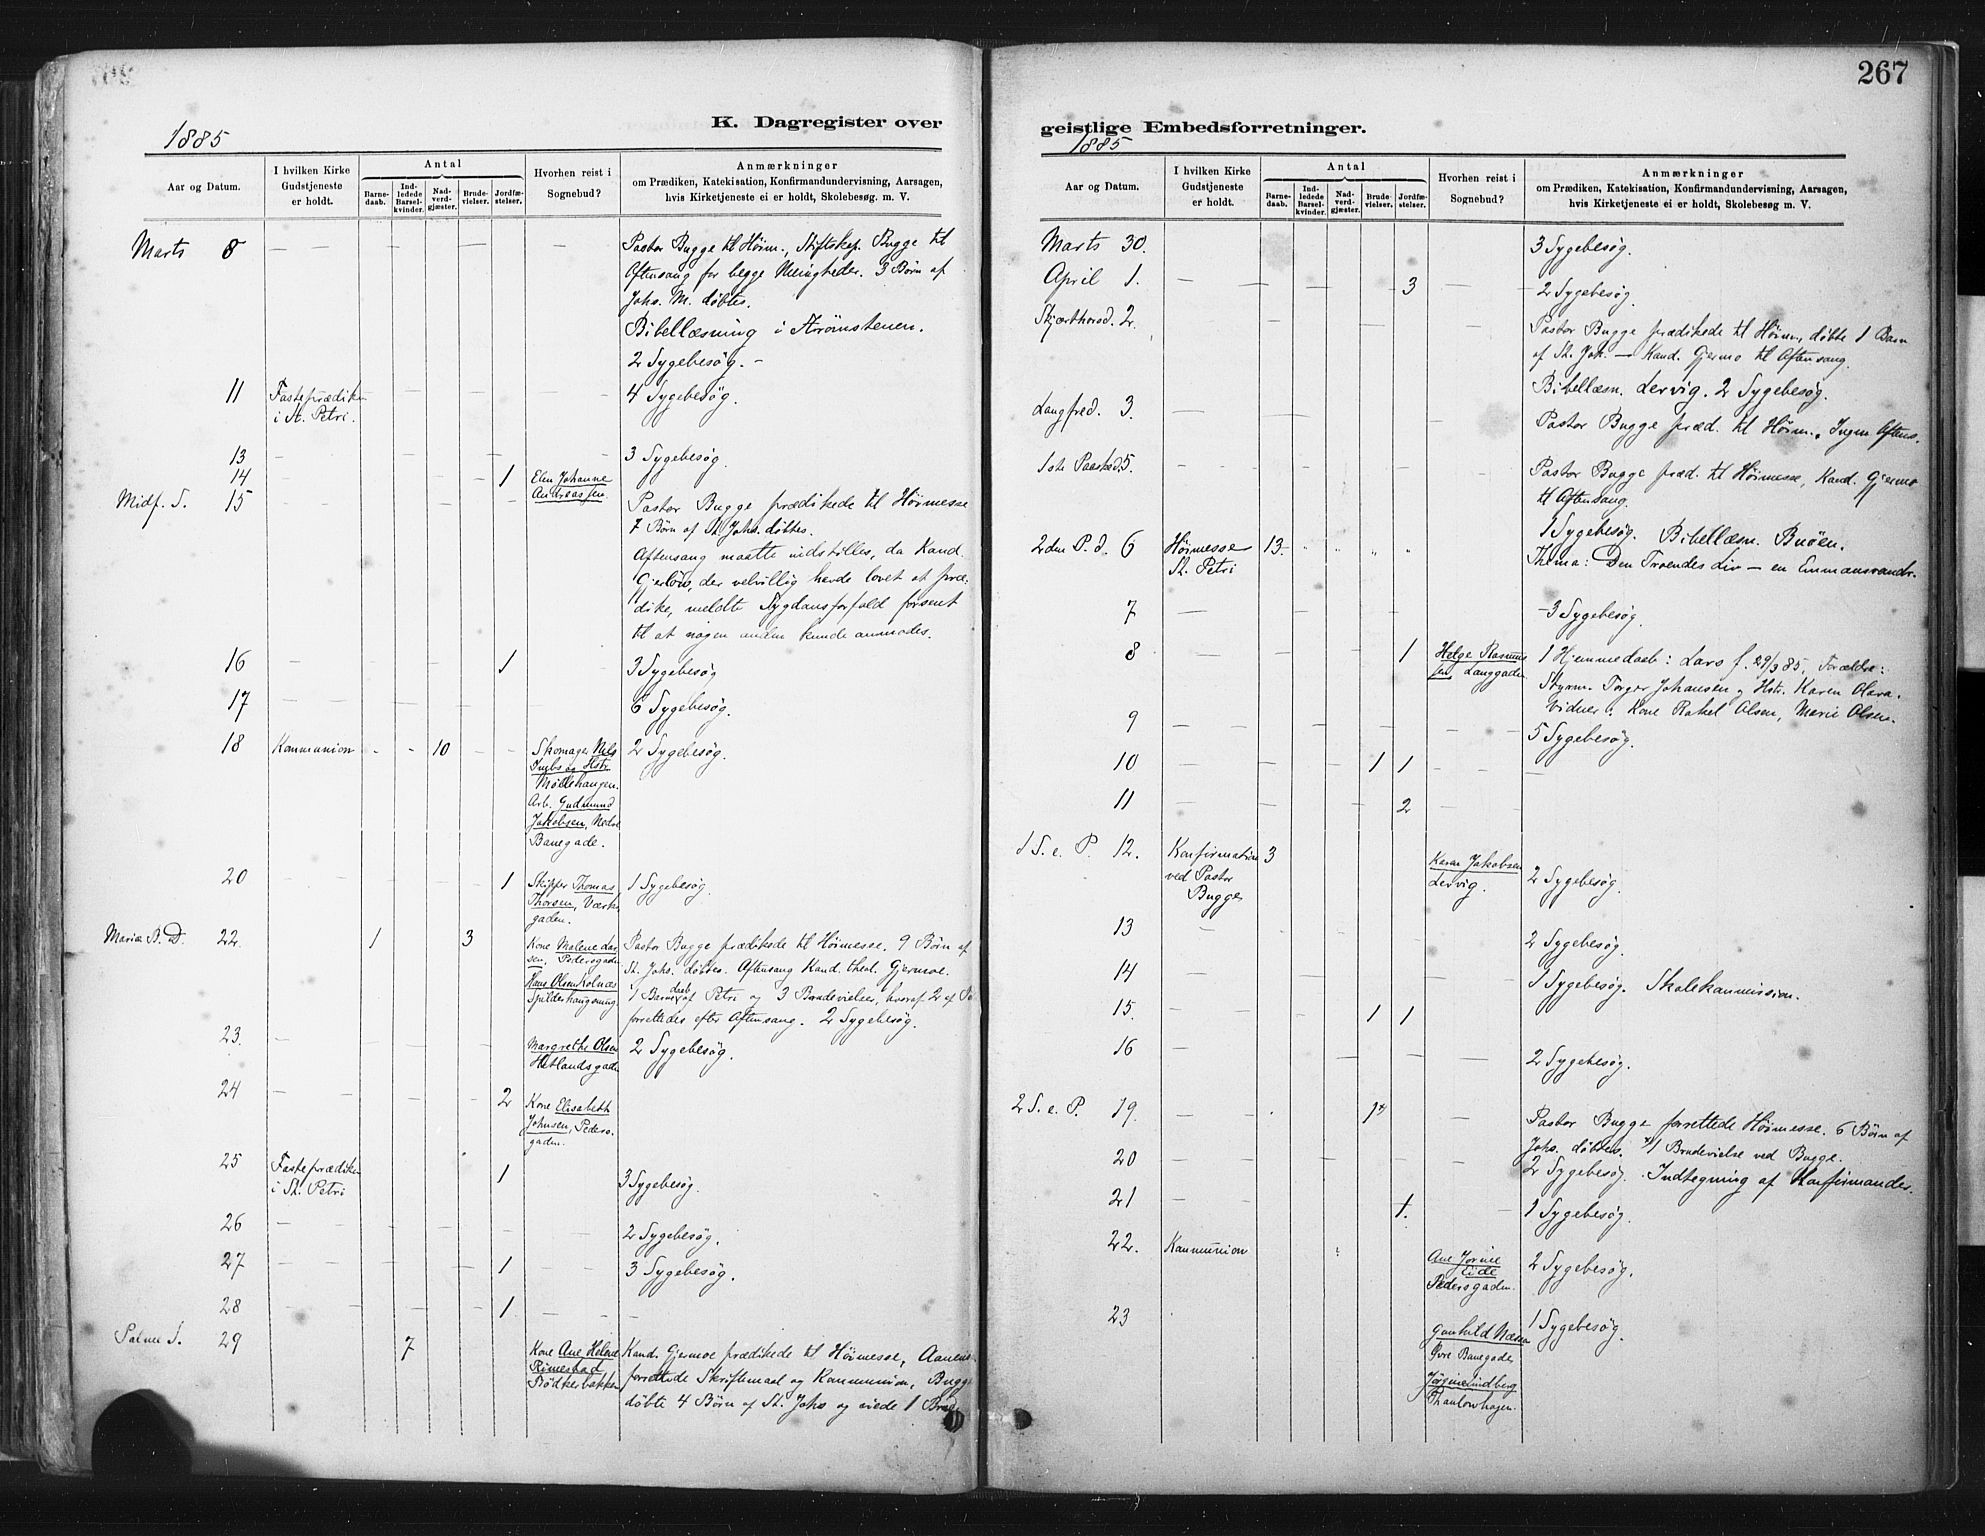 267
K. Dagregister over
geistlige Embedsforretninger.
1885
Aar og Datum.
I hvilken Kirke
Gudstjeneste
er holdt.
Antal
Barne-
daab.
Ind-
ledede
Barsel-
kvinder.
Nad-
verd-
gjæster.
Brude-
vielser.
Jordfæ-
stelser.
Hvorhen reist i
Sognebud?
Anmærkninger
om Prædiken, Katekisation, Konfirmandundervisning, Aarsagen,
hvis Kirketjeneste ei er holdt, Skolebesøg m. V.
Marts 8 Pastor Bugge til Høim., Stiftskap. Bugge til
Aftensang for begge Menigheder. 3 Børn af
Johs. M. døbtes.
Bibellæsning i Strømstenen.
2 Sygebesøg.
11 Fasteprædiken 4 Sygebesøg.
i St. Petri.
13 3 Sygebesøg.
14 1 Elen Johanne
Andreassen.
Midf. S. 15 Pastor Bugge prædikede til Høimesse
7 Børn af St. Johs. døbtes.
Aftensang maatte indstilles, da Kand.
der velvillig havde lovet at præ-
dike, meldte Sygdomsforfald forsent
til at nogen anden kunde anmodes.
16 1 3 Sygebesøg
17 6 Sygebesøg.
18 Kommunion 10 Skomager Nels 2 Sygebesøg.
og Hstr.
Møllehaugen.
Arb. Gudmund
Jakobsen, Nedre
Banegade.
20 1 Skipper Thomas 1 Sygebesøg.
Thorsen, Værks
gaden.
Mariæ B. D. 22. 1 3 Kone Malene Lar Pastor Bugge prædikede til Høimesse. 9 Børn af
sen, Pedersgaden St. Johs. døbtes. Aftensang Kand. theol. Gjermoe.
Hans Olsen Kolnæs 1 Barnedaab af Petri og 3 Brudevielser, hvoraf 2 af
Spilderhaugsung. forrettedes efter Aftensang. 2 Sygebesøg.
23. Margrethe Olsen 2 Sygebesøg.
Hetlandsgaden
24 2 Kone Elisabeth
Johnsen, Peders-
gaden.
25 Fasteprædiken 1 3 Sygebesøg.
i St. Petri
26 2 Sygebesøg.
27 1 3 Sygebesøg.
28 1
Palme S. 29 7 Kone Ane Helene Kand. Gjermoe prædikede til Høimesse, Aanens
Rimestad forrettede Skriftemaal og Kommunion, Bugge
Bødkerbakken døbte 4 Børn af St. Johs og viede 1 Brud
1885
Aar og Datum.
I hvilken Kirke
Gudstjeneste
er holdt.
Antal
Barne-
daab.
Ind-
ledede
Barsel-
kvinder.
Nad-
verd-
gjæster.
Brude-
vielser.
Jordfæ-
stelser.
Hvorhen reist i
Sognebud?
Anmærkninger
om Prædiken, Katekisation, Konfirmandundervisning, Aarsagen,
hvis Kirketjeneste ei er holdt, Skolebesøg m. V.
Marts 30. 3 Sygebesøg.
April 1. 3 2 Sygebesøg.
Skjærthorsd. 2. Pastor Bugge prædikede til Høim, døbte 1 Barn
af St. Joh. — Kand. Gjermo til Aftensang.
Bibellæsn. Lervig. 2 Sygebesøg.
Langfred. 3. Pastor Bugge præd. til Høim., Ingen Aftens.
1ste Paasked. 5. Pastor Bugge præd. til Høimesse, Kand. Gjermo
til Aftensang.
1 Sygebesøg. Bibellæsn. Buøen.
2den P. d. 6 Høimesse 13
St. Petri Thema: Den Troendes Liv — en Emmausvandr.
7 3 Sygebesøg.
8 1 Helge Rasmus 1 Hjemmedaab: Lars f. 29/3 85, Forældre:
sen Langgaden Styrm. Torger Johansen og Hstr. Karen Olava.
Vidner: Kone Rakel Olsen, Marie Olsen.
9 5 Sygebesøg.
10 1 1
11 2
1 S. e. P. 12. Konfirmation 3 Karen Jakobsen 2 Sygebesøg.
ved Pastor Lervig.
Bugge
13 2 Sygebesøg.
14 Sygebesøg. Skolekommission.
15. 1 1
16 2 Sygebesøg.
2 S. e. P. 19. 1x Pastor Bugge forrettede Høimesse. 6 Børn af
Johs. døbtes. x/1 Brudevielse ved Bugge.
20 2 Sygebesøg. Indtegning af Konfirmander.
21 1. 1 Sygebesøg.
22. Kommunion Ane 2 Sygebesøg.
Eide
Pedersgaden.
23 Gunhild 1 Sygebesøg.
Øvre Banegade,
Jørgine Lindberg
Thaulowhagen.